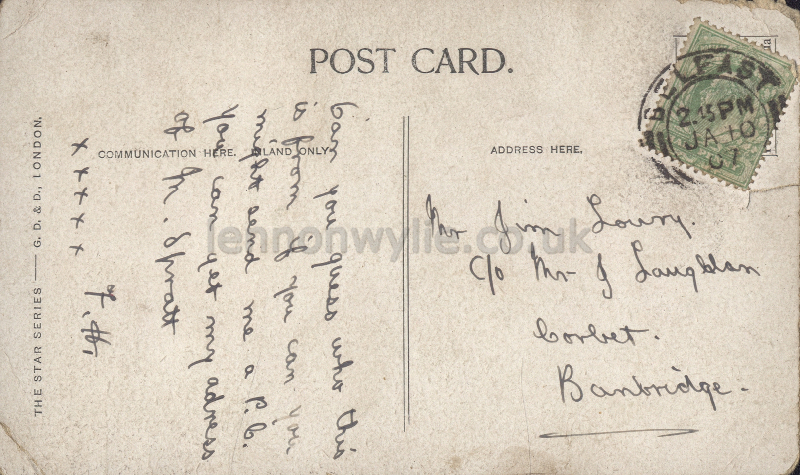 POST CARD.
COMMUNICATION HERE. INLAND ONLY
ADDRESS HERE.
THE STAR SERIES — G. D. & D., LONDON.
Can you guess who this
is from if you can you
might send me a P.C.
you can get my adress
of M. Spratt
x x x x x
BELFAST
2.15PM
JA 10
07
Mr Jim Lowry.
c/o Mr J Laughlan
Corbet.
Banbridge.
lennonwylie.co.uk